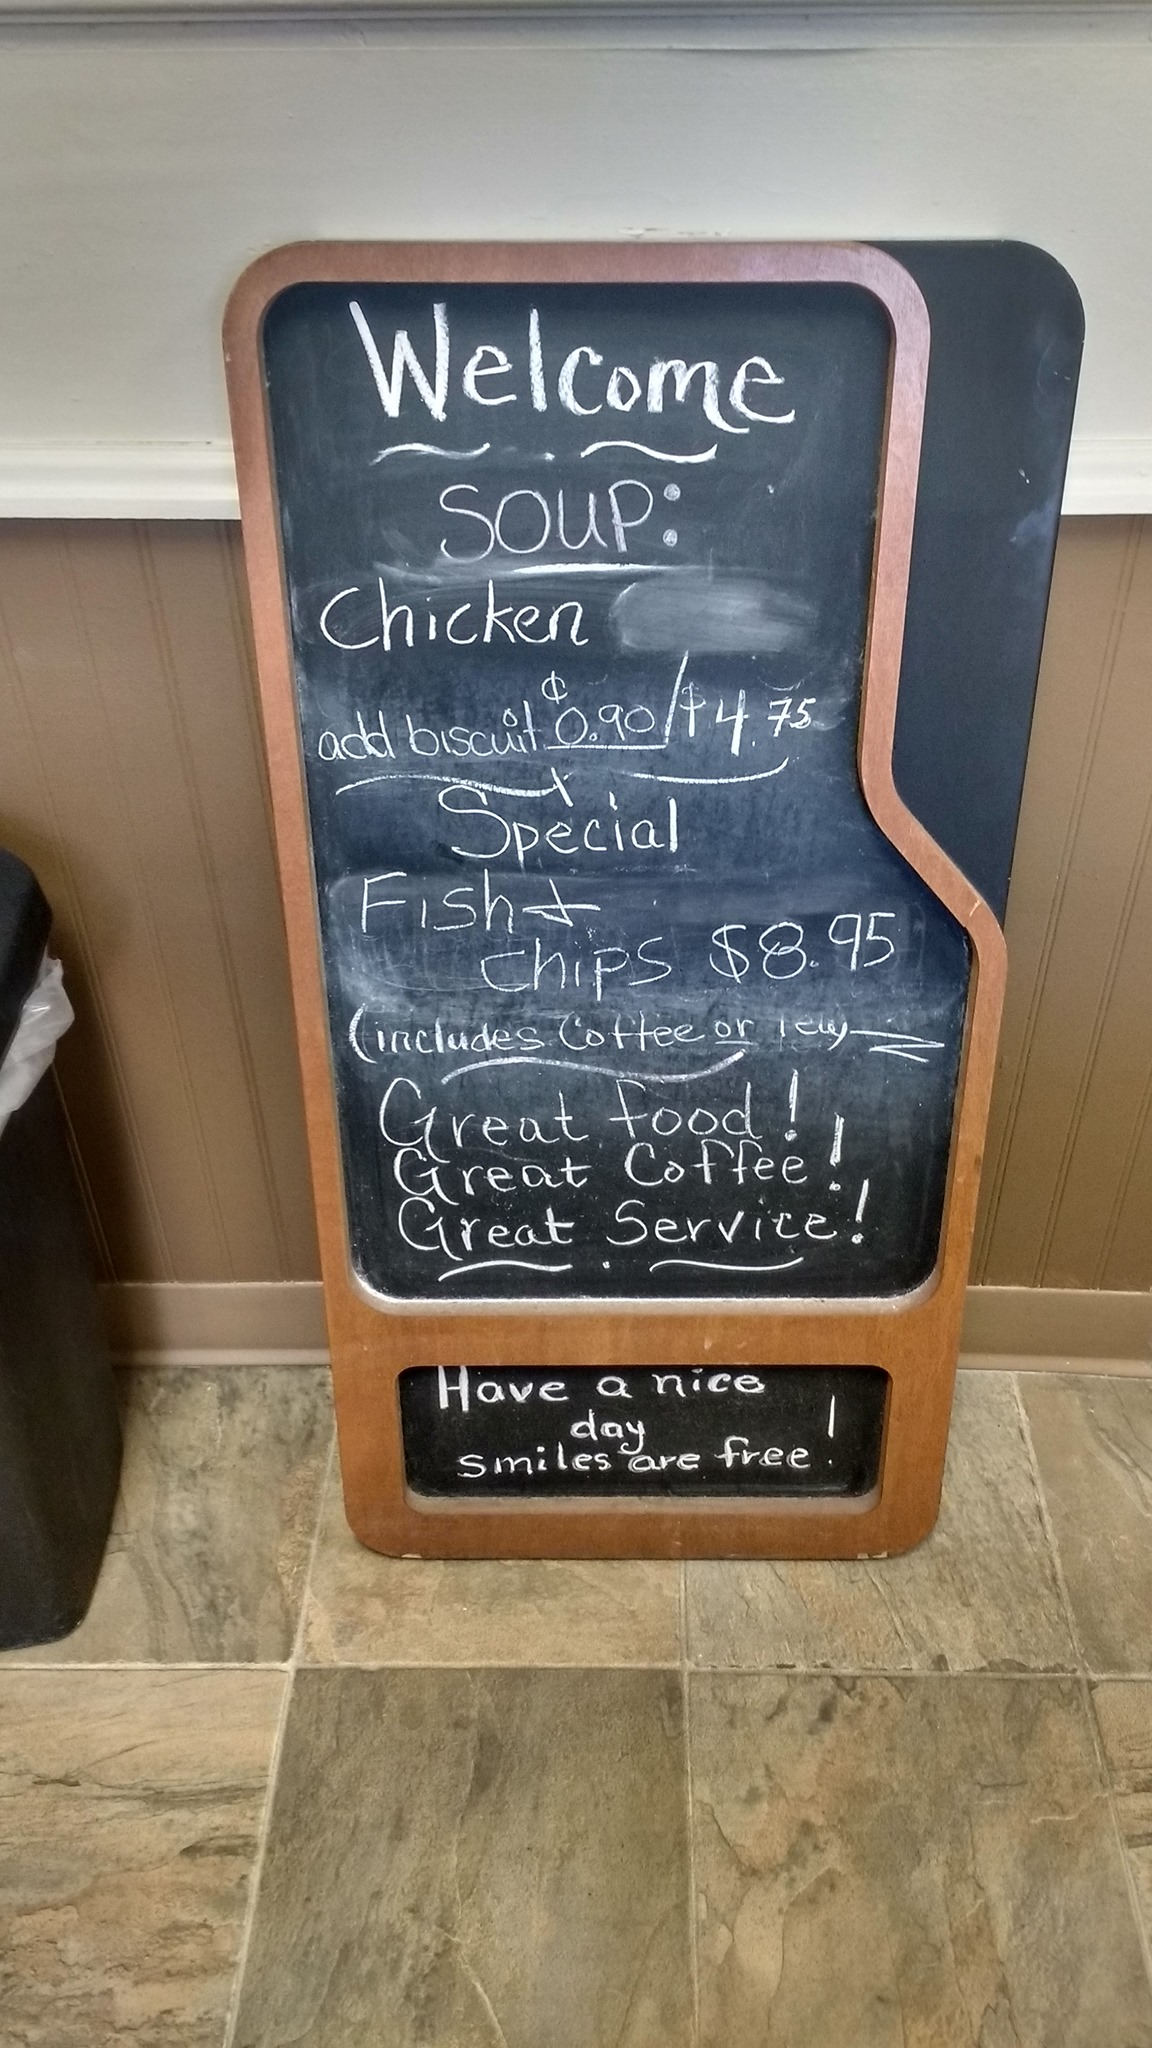 Welcome
SOUP:
Chicken
add biscuit ¢0.90/$4.75
Special
Fish +
Chips $8.95
(includes Coffee or
Great food!
Great Coffee!
Great Service!
Have a nice
day
smiles are free!